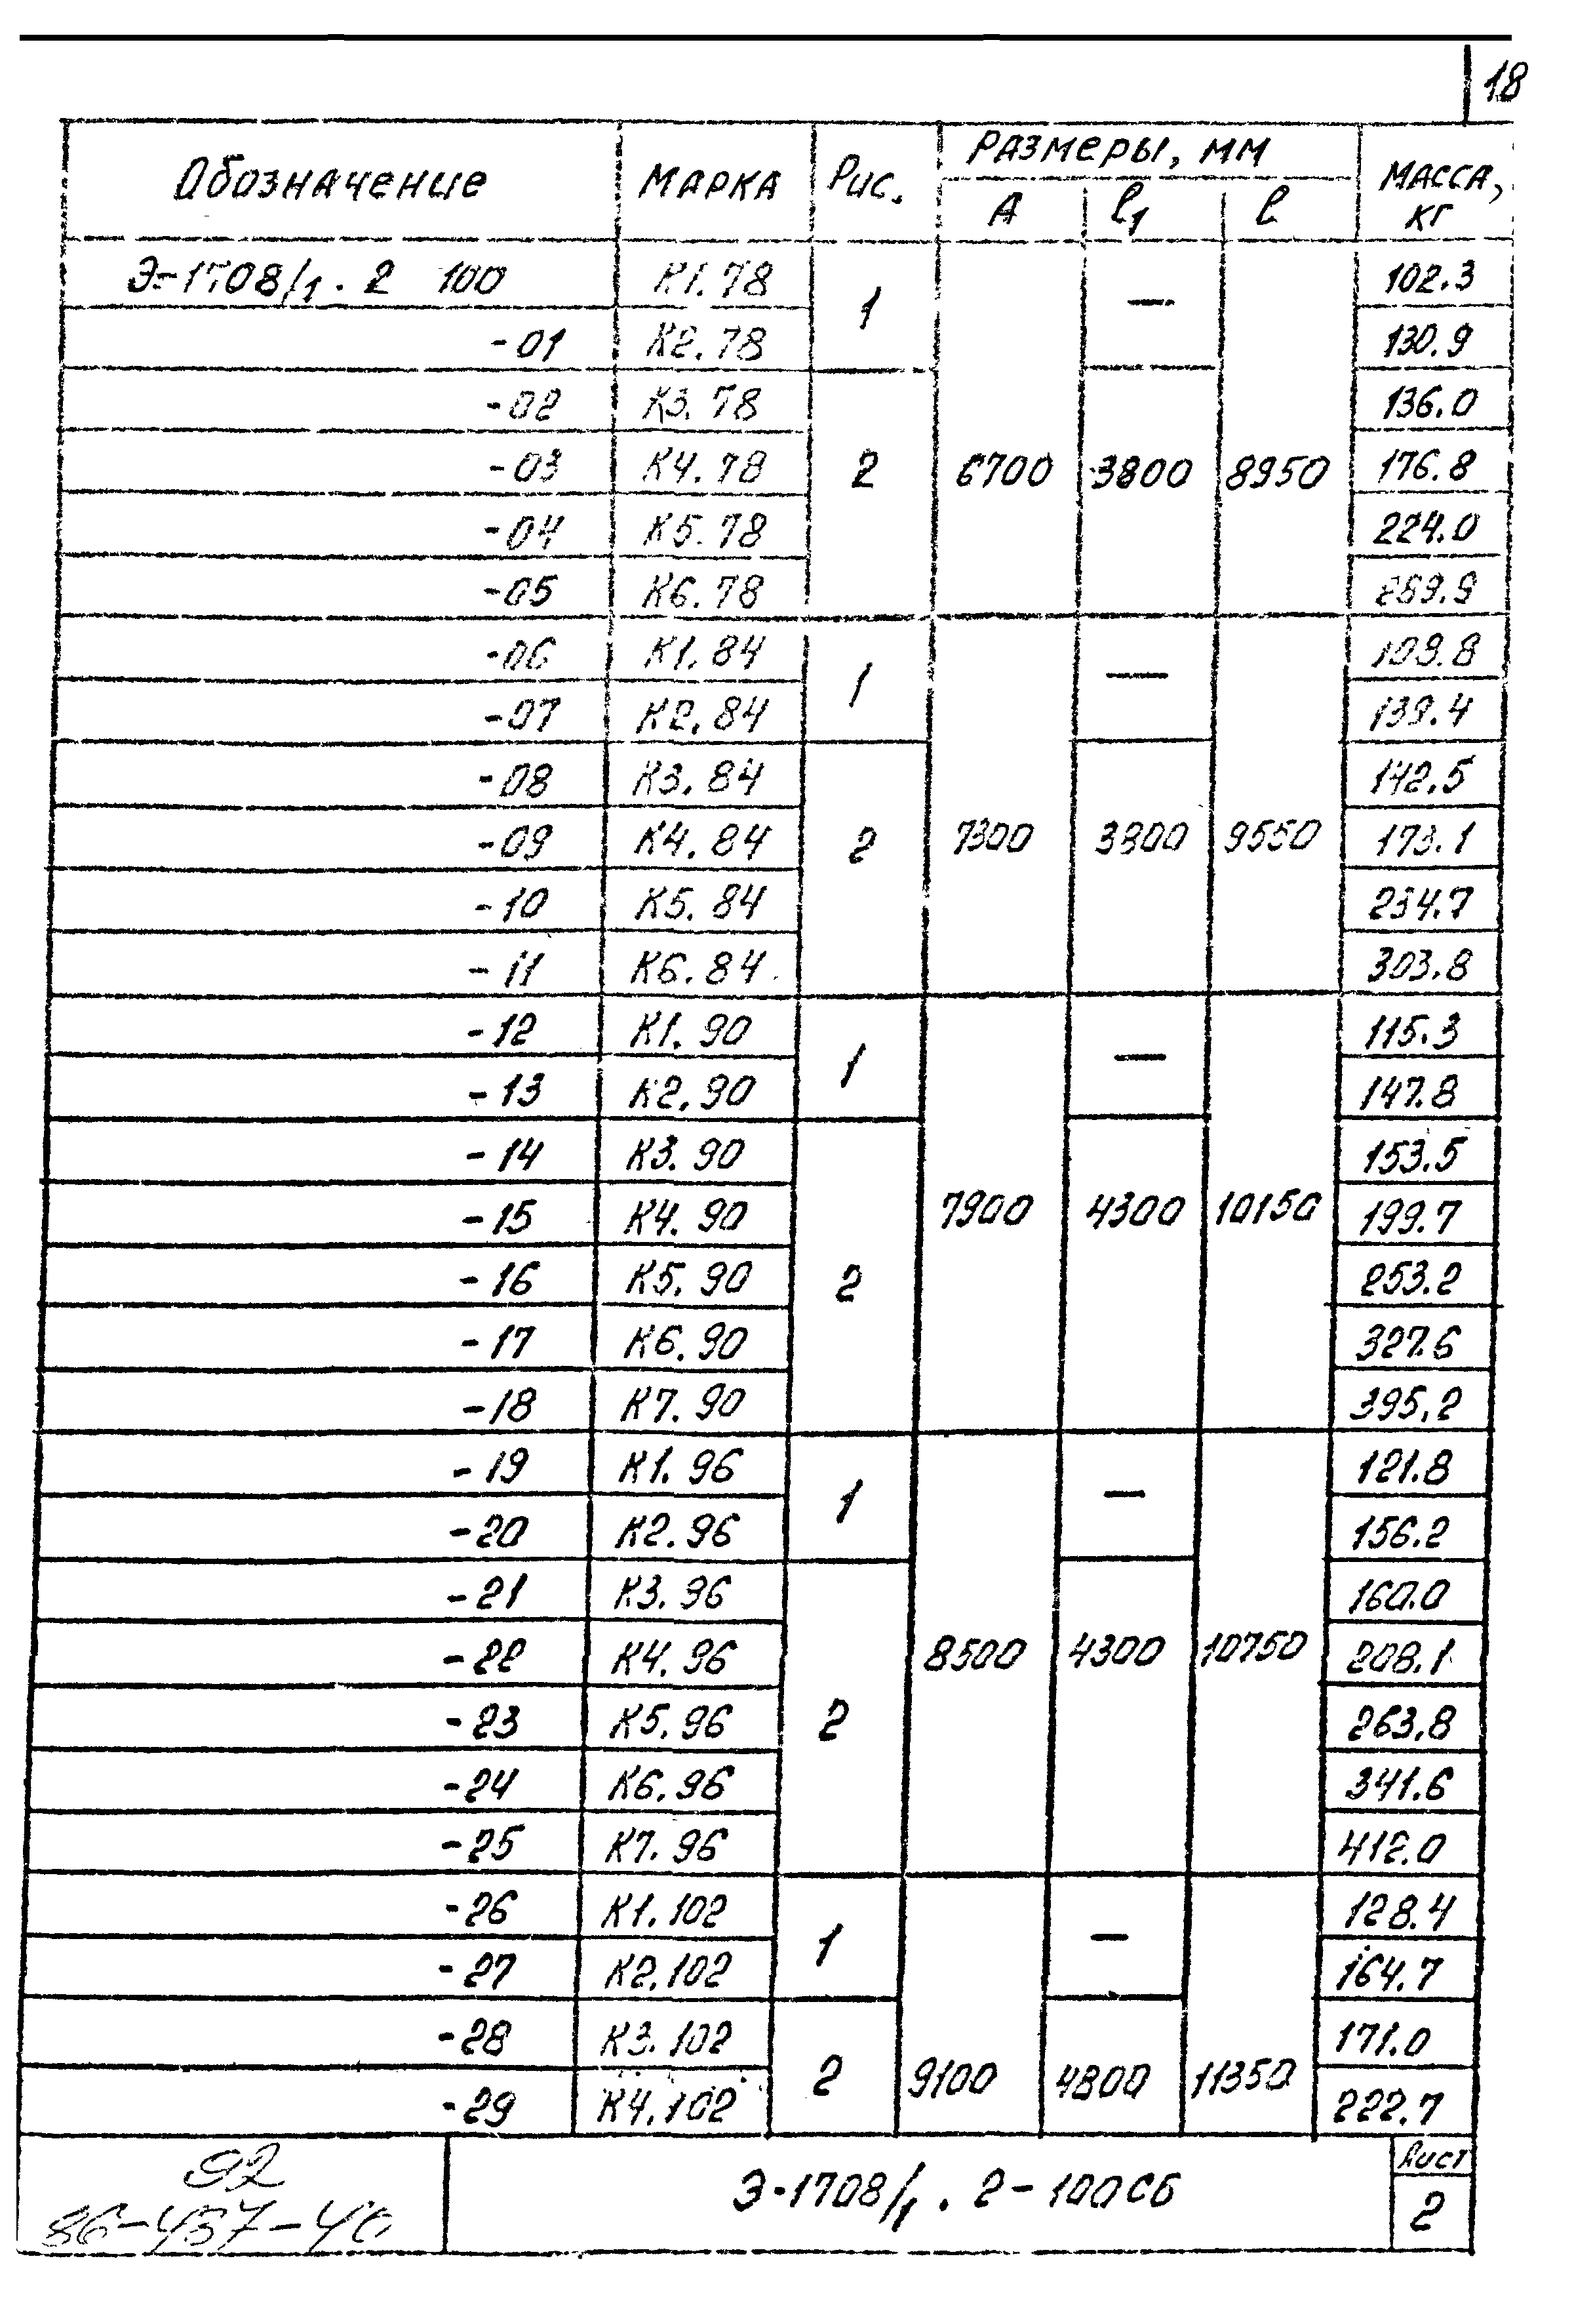 18
Обозначение МАРКА Рис. Размеры, мм МАССА, кг
А l1 l
Э-1708/1 . 2 100 К1.78 1 — 102.3
-01 К2.78 130.9
-02 К3.78 136.0
-03 К4.78 2 6700 3800 8950 176.8
-04 К5.78 224.0
-05 К6.78 289.9
-06 К1.84 1 — 109.8
-07 К2.84 139.4
-08 К3.84 142.5
-09 К4.84 2 7300 3800 9550 173.1
-10 К5.84 234.7
-11 К6.84 303.8
-12 К1.90 1 — 115.3
-13 К2.90 147.8
-14 К3.90 153.5
-15 К4.90 7900 4300 10150 199.7
-16 К5.90 2 253.2
-17 К6.90 327.6
-18 К7.90 395.2
-19 К1.96 1 — 121.8
-20 К2.96 156.2
-21 К3.96 160.0
-22 К4.96 8500 4300 10750 208.1
-23 К5.96 2 263.8
-24 К6.96 341.6
-25 К7.96 412.0
-26 К1.102 1 — 128.4
-27 К2.102 164.7
-28 К3.102 171.0
-29 К4.102 2 9100 4800 11350 222.7
92
Э-1708/1 . 2-100СБ
Лист
2